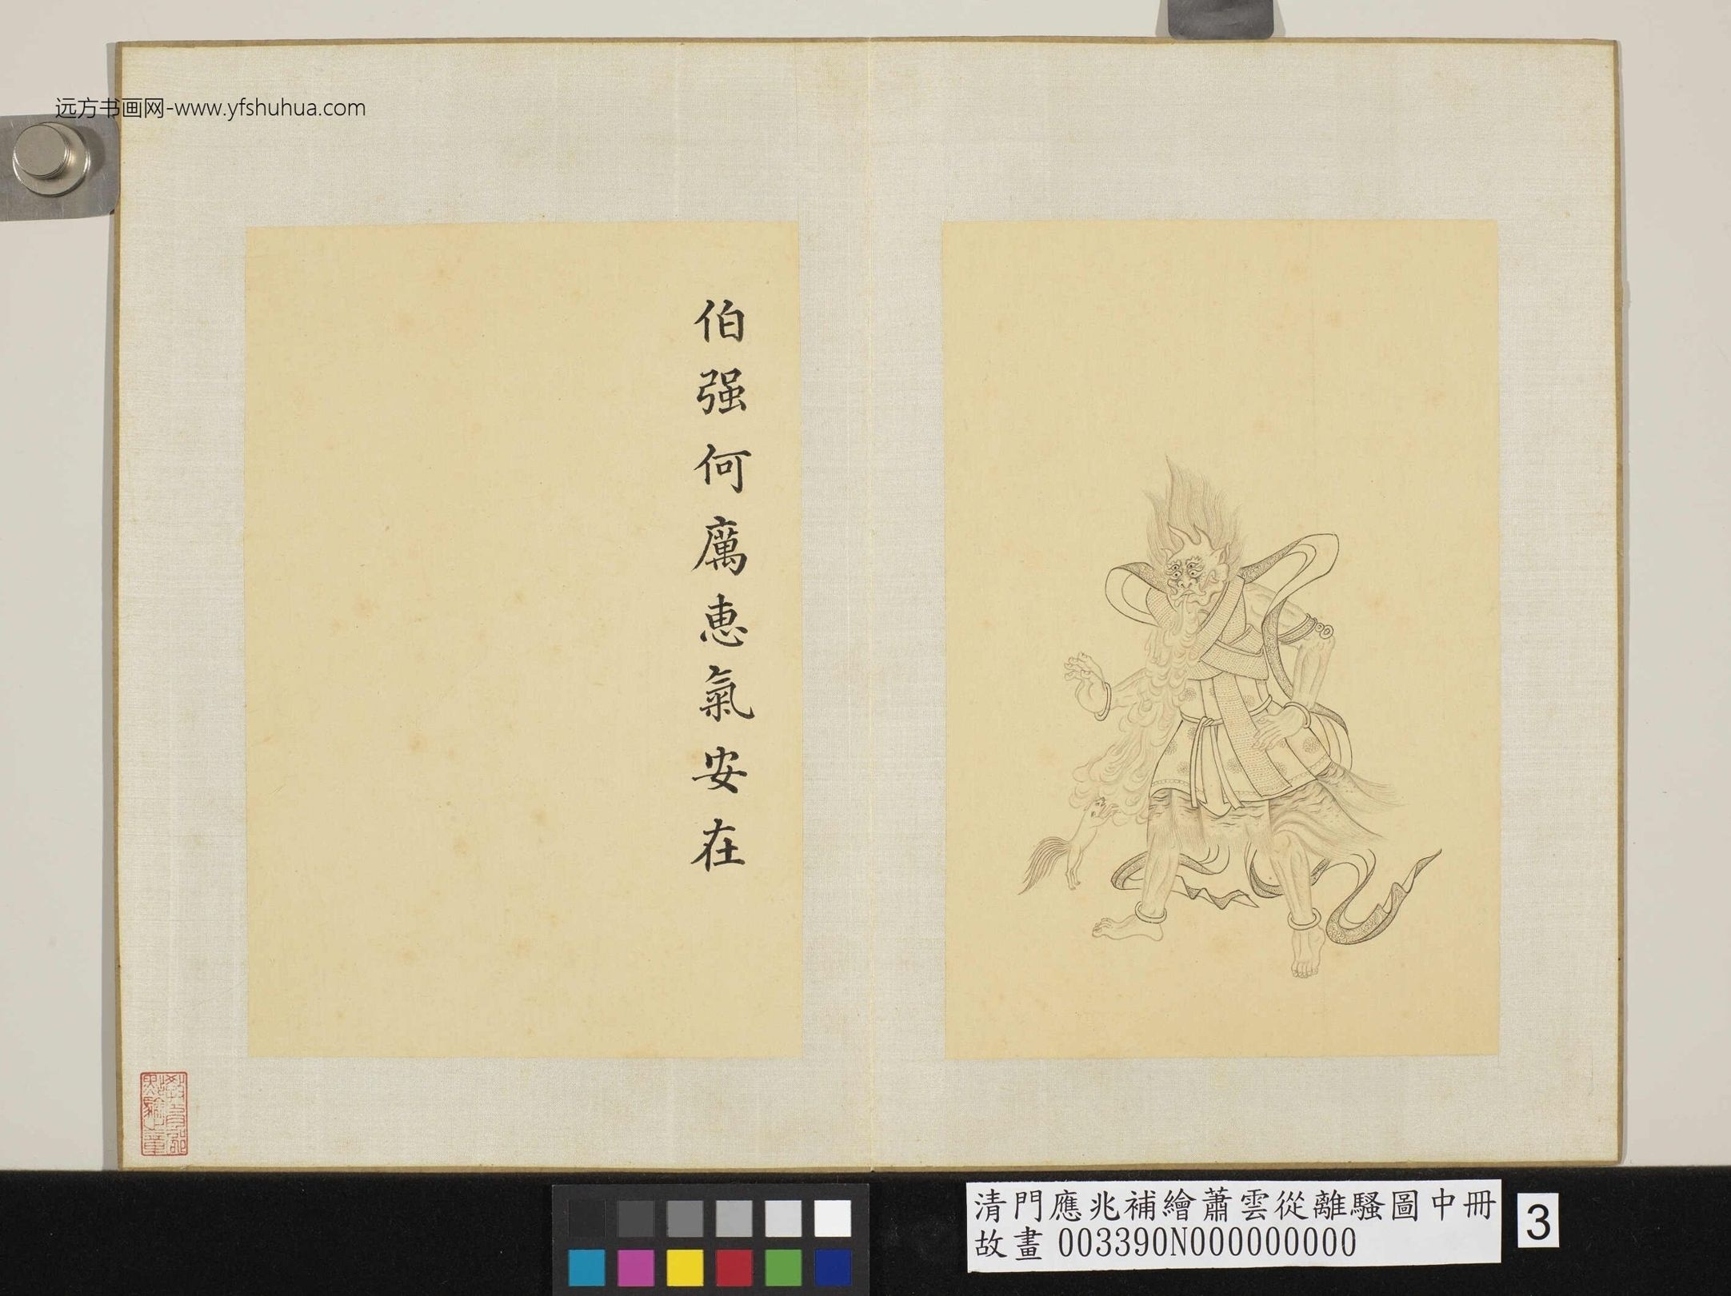 远方书画网-www.yfshuhua.com
伯强何厲惠氣安在
清門應兆補繪蕭雲從離騷圖中冊
故畫003390N000000000
3